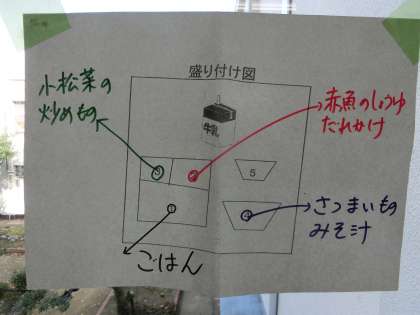 盛り付け図
小松菜の
炒めもの
牛乳
赤魚のしょうゆ
だれかけ
5
さつまいもの
みそ汁
ごはん